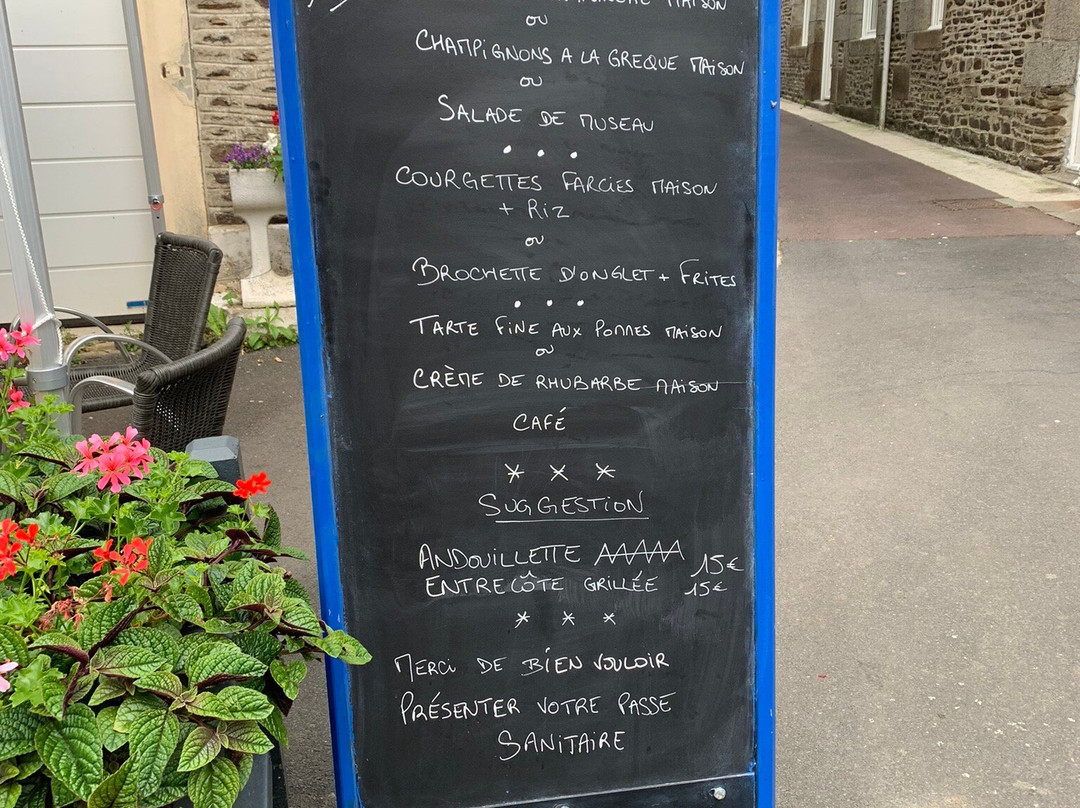 MAISON
OU
CHAMPIGNONS A LA GREQUE MAISON
OU
SALADE DE MUSEAU
COURGETTES FARCIES MAISON
+ RIZ
OU
BROCHETTE D'ONGLET + FRITES
TARTE FINE AUX POMMES MAISON
OU
CRÈME DE RHUBARBE MAISON
CAFÉ
SUGGESTION
ANDOUILLETTE AAAAA 15€
ENTRECÔTE GRILLÉE 15€
MERCI DE BIEN VOULOIR
PRÉSENTER VOTRE PASSE
SANITAIRE